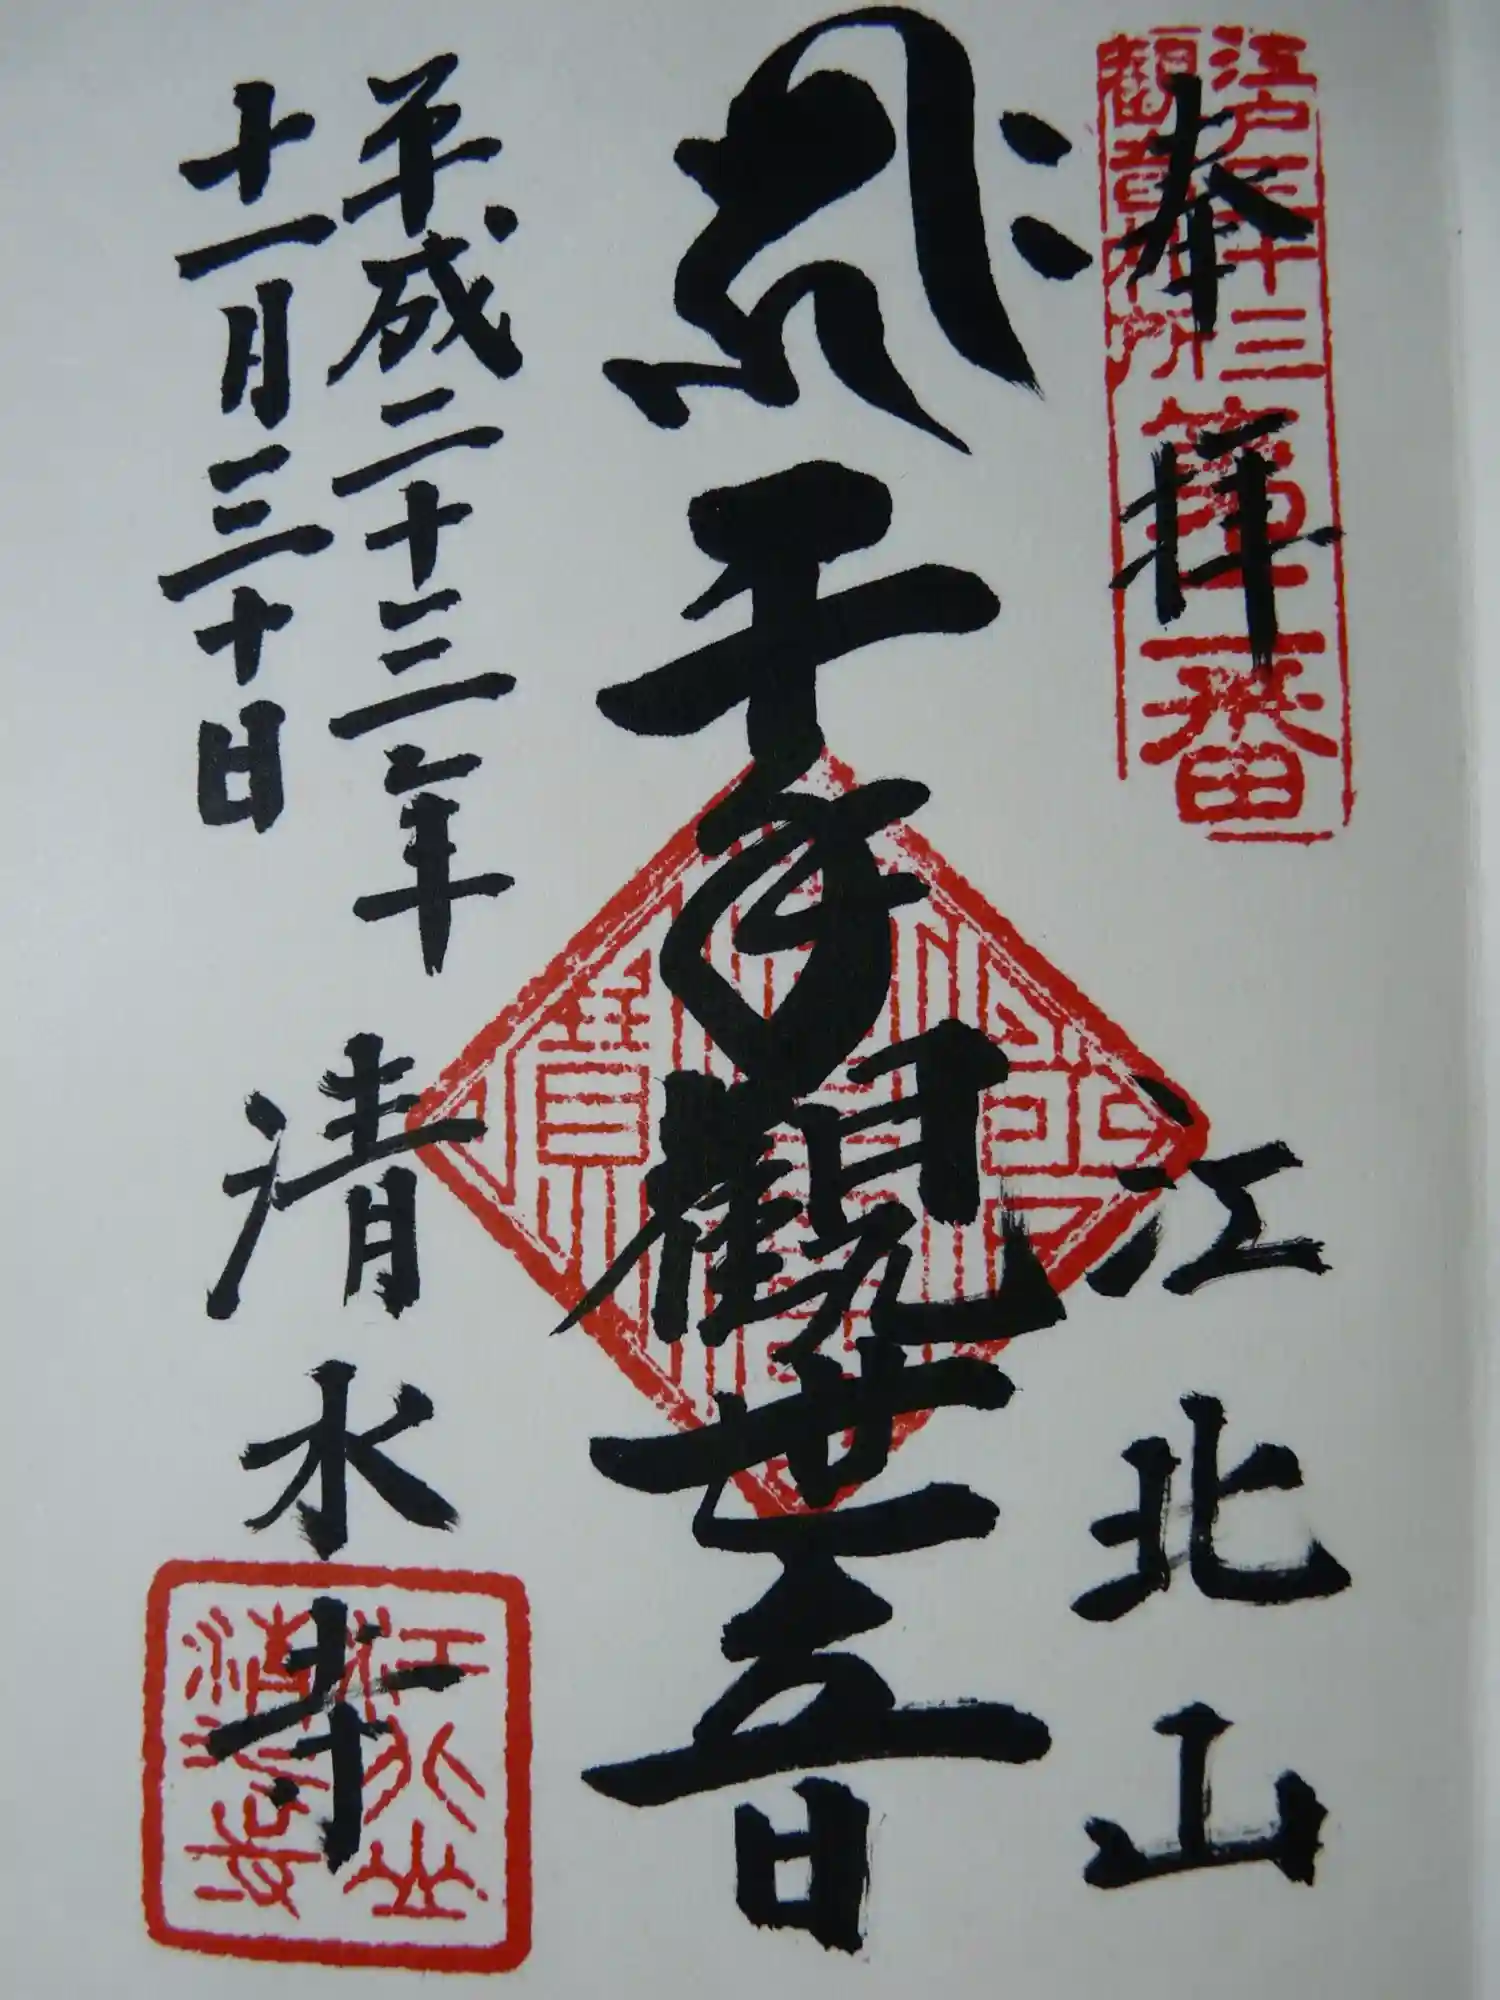 江戸三十三
觀音札所
第二番
奉拝
江北山
千手觀世音
平成二十三年
十一月三十日
清水寺
江北山
清水寺